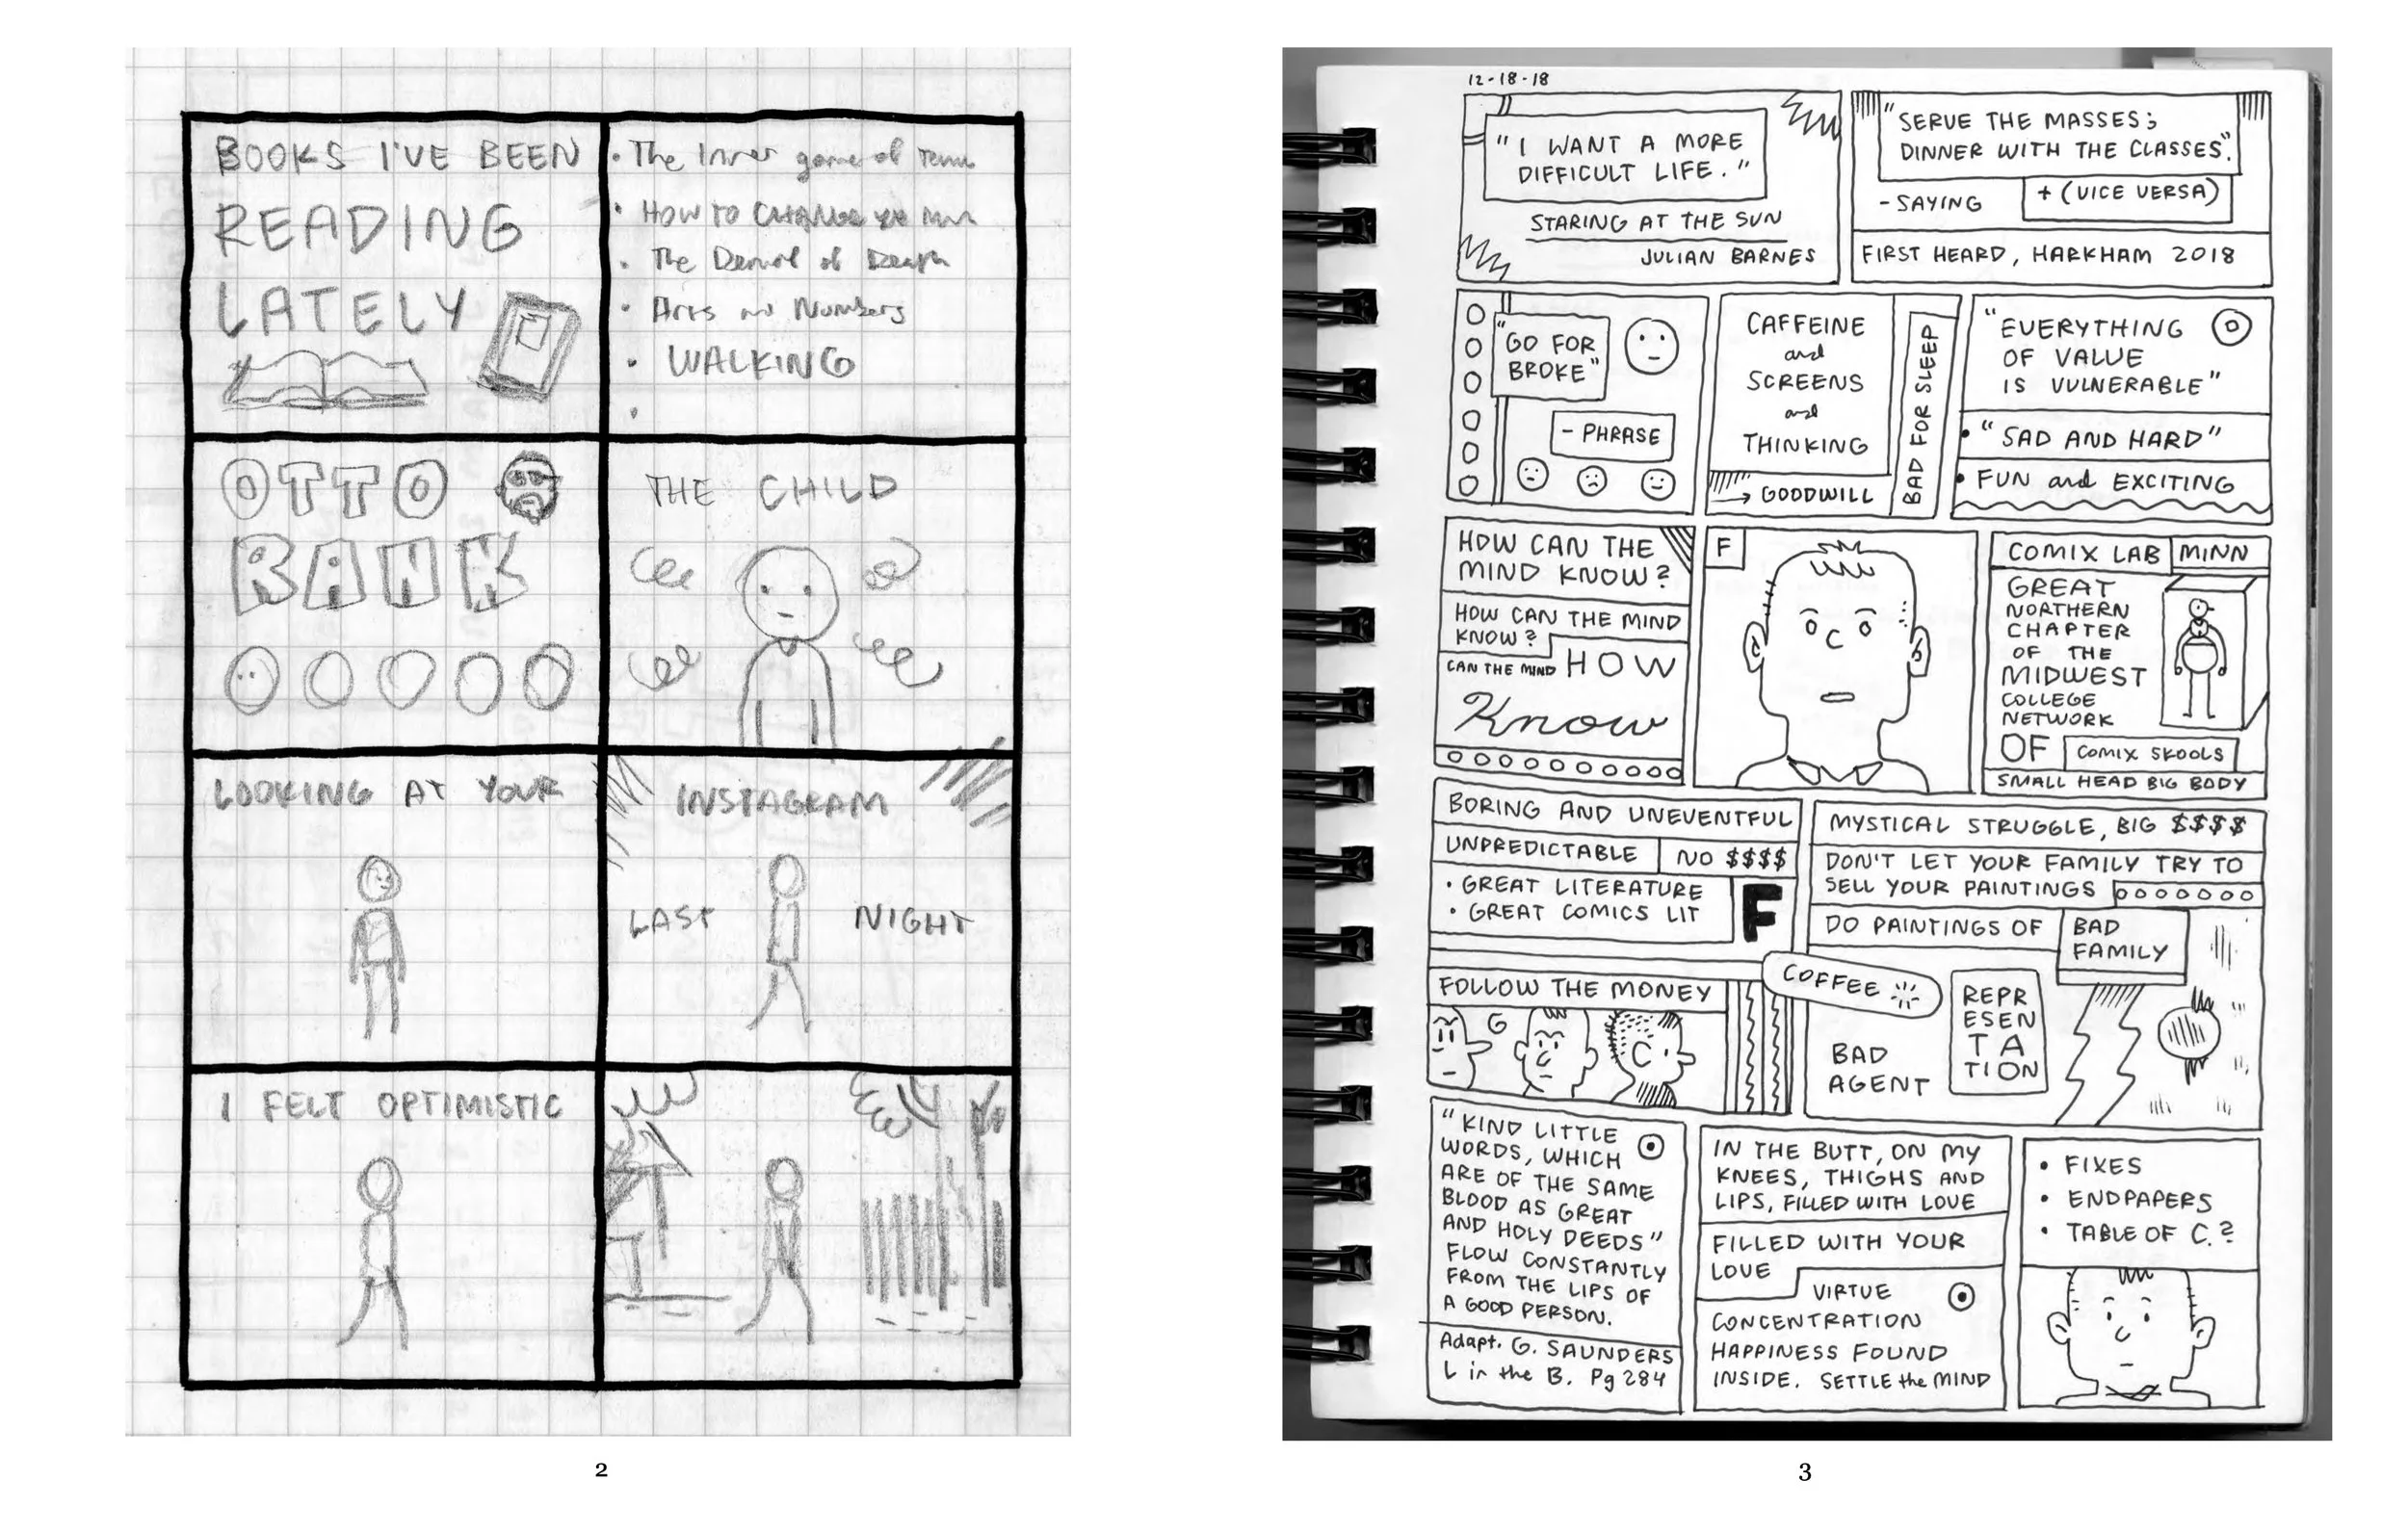 BOOKS I'VE BEEN
READING
LATELY
• The Inner game of Tennis
• HOW TO CHANGE
• The Denial of Death
• Arts and Numbers
• WALKING
•
OTTO
RANK
THE CHILD
LOOKING AT YOUR
INSTAGRAM
LAST NIGHT
I FELT OPTIMISTIC
2
12-18-18
"I WANT A MORE
DIFFICULT LIFE."
STARING AT THE SUN
JULIAN BARNES
"SERVE THE MASSES;
DINNER WITH THE CLASSES".
- SAYING
+ (VICE VERSA)
FIRST HEARD, HARKHAM 2018
"GO FOR
BROKE"
- PHRASE
CAFFEINE
and
SCREENS
and
THINKING
→ GOODWILL
BAD FOR SLEEP
"EVERYTHING
OF VALUE
IS VULNERABLE"
• "SAD AND HARD"
• FUN and EXCITING
HOW CAN THE
MIND KNOW?
HOW CAN THE MIND
KNOW?
CAN THE MIND HOW
Know
F
COMIX LAB MINN
GREAT
NORTHERN
CHAPTER
OF THE
MIDWEST
COLLEGE
NETWORK
OF COMIX SKOOLS
SMALL HEAD BIG BODY
BORING AND UNEVENTFUL
UNPREDICTABLE NO $$$$
• GREAT LITERATURE
• GREAT COMICS LIT
F
FOLLOW THE MONEY
MYSTICAL STRUGGLE, BIG $$$$
DON'T LET YOUR FAMILY TRY TO
SELL YOUR PAINTINGS
DO PAINTINGS OF BAD
FAMILY
COFFEE
BAD
AGENT
REPR
ESEN
TA
TION
"KIND LITTLE
WORDS, WHICH
ARE OF THE SAME
BLOOD AS GREAT
AND HOLY DEEDS"
FLOW CONSTANTLY
FROM THE LIPS OF
A GOOD PERSON.
Adapt. G. SAUNDERS
L in the B. Pg 284
IN THE BUTT, ON MY
KNEES, THIGHS AND
LIPS, FILLED WITH LOVE
FILLED WITH YOUR
LOVE
VIRTUE
CONCENTRATION
HAPPINESS FOUND
INSIDE. SETTLE the MIND
• FIXES
• ENDPAPERS
• TABLE OF C.?
3